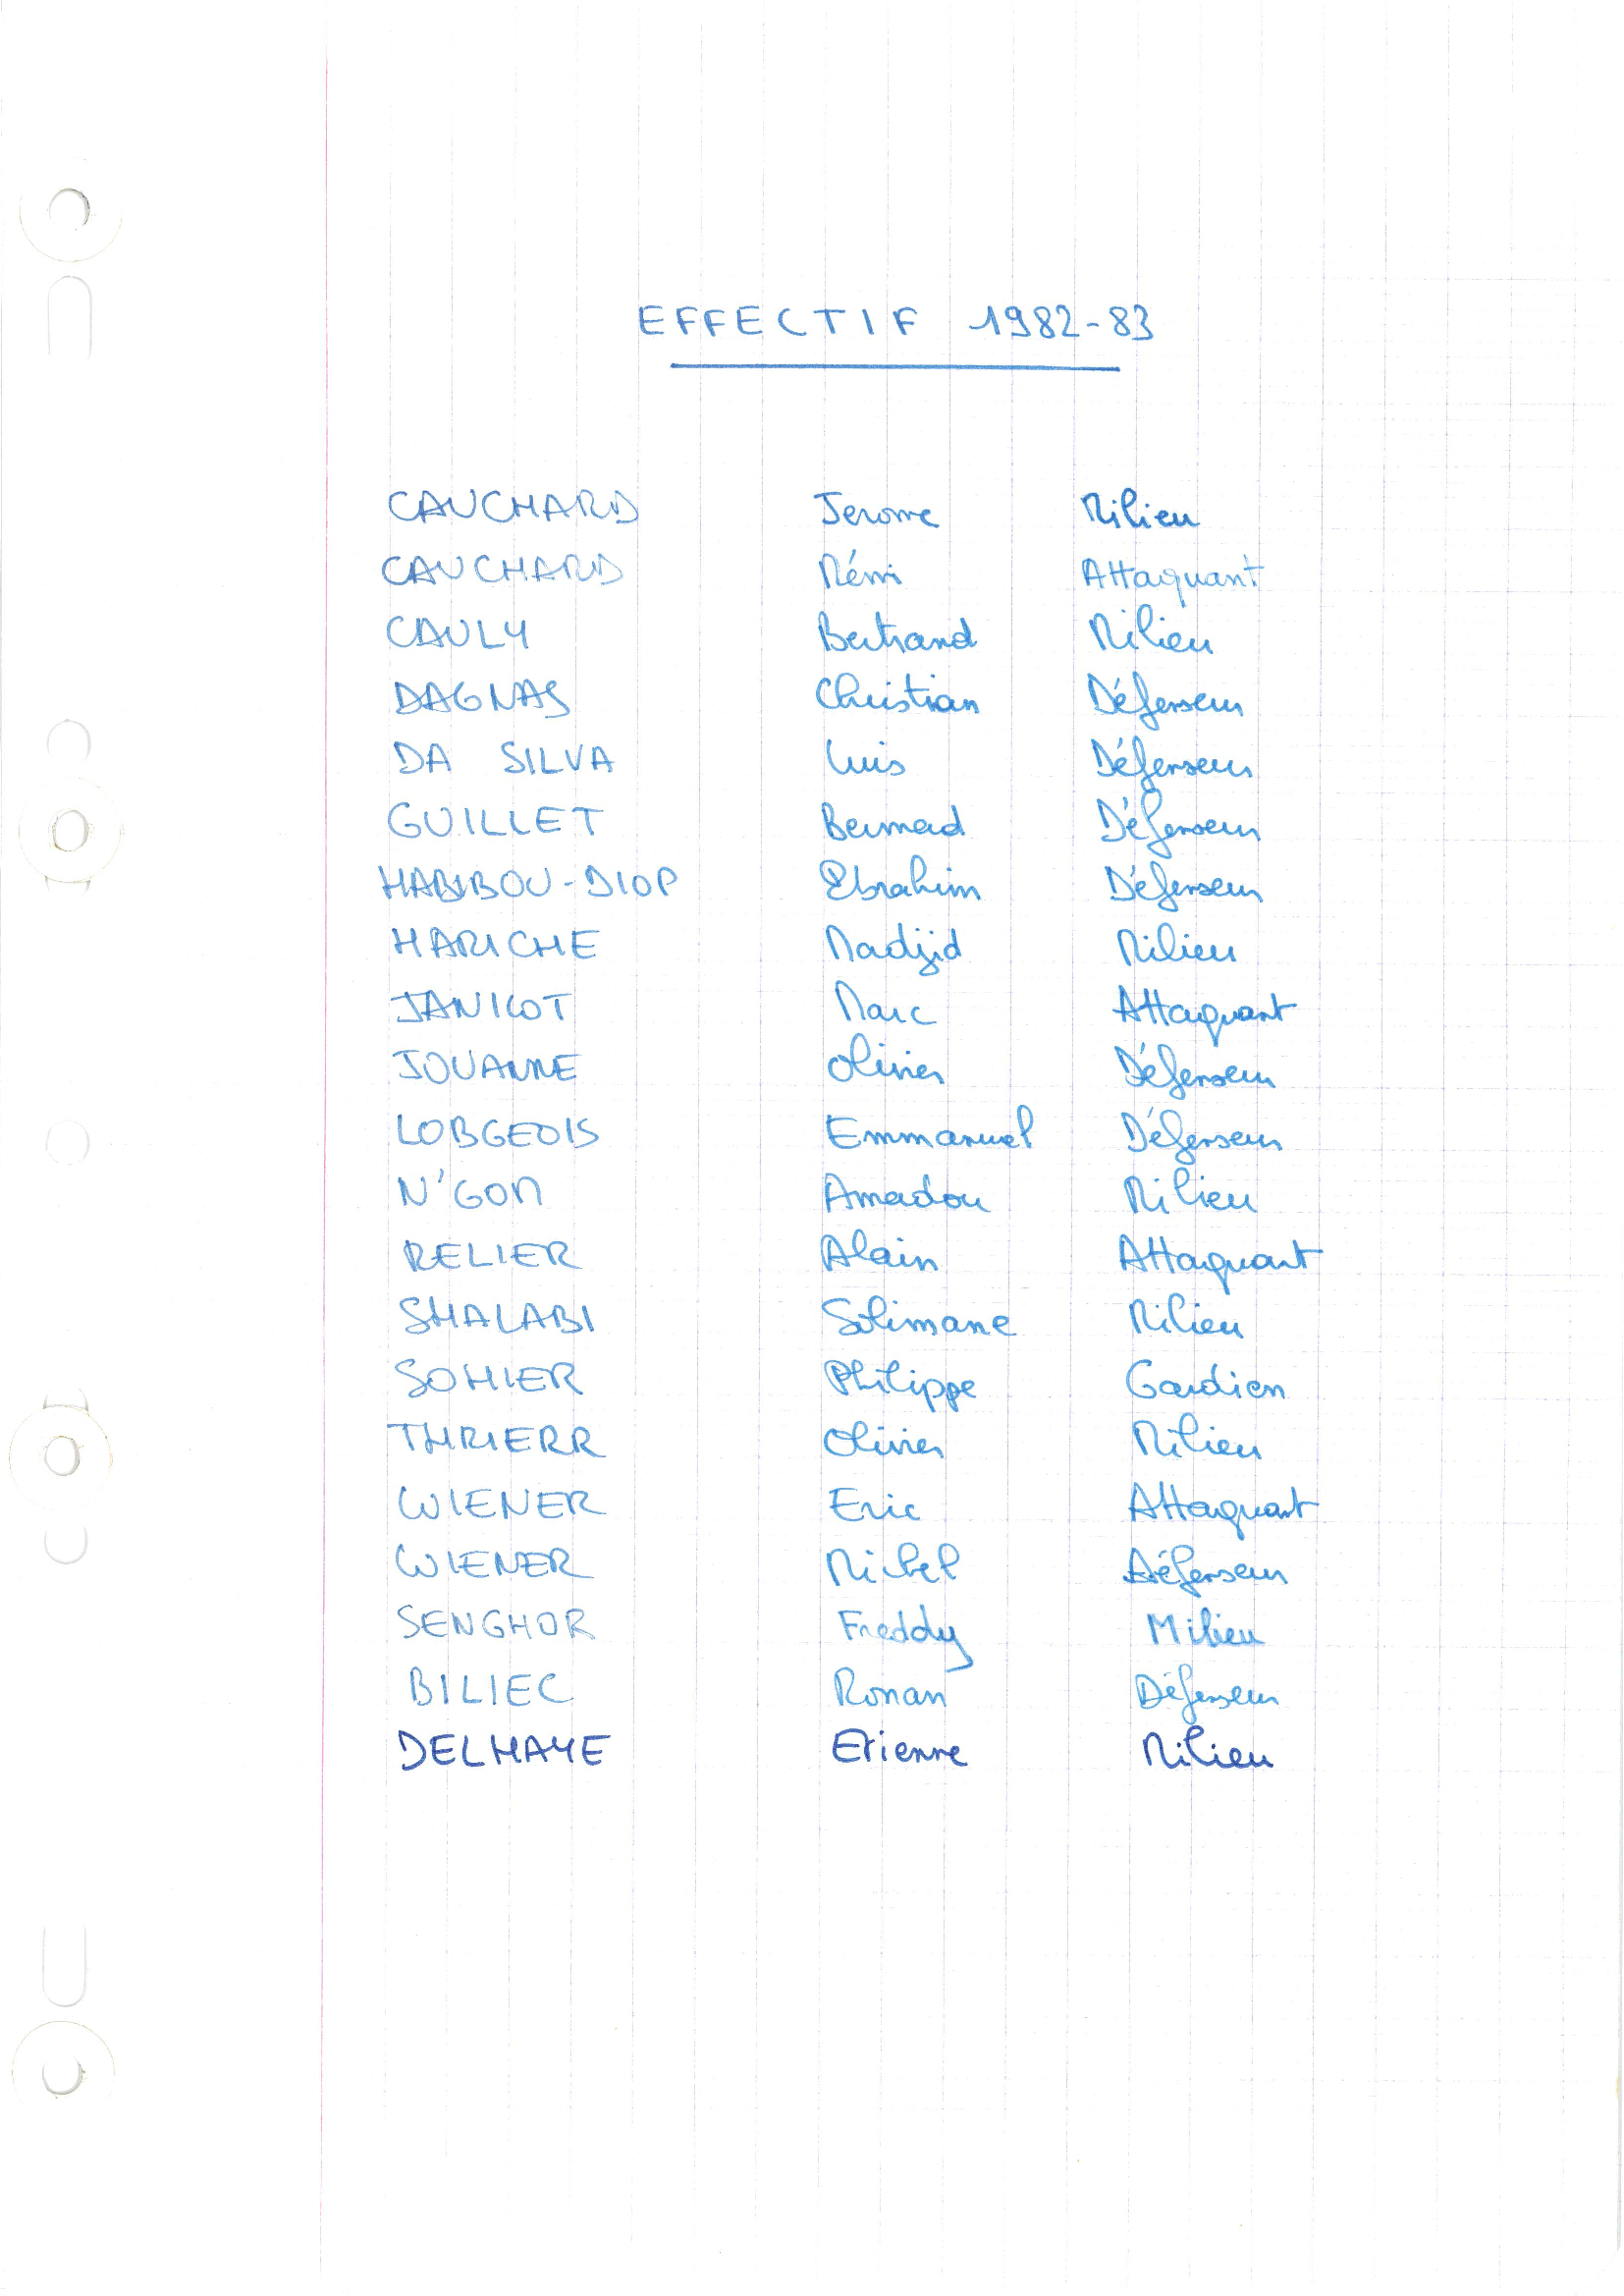 EFFECTIF 1982-83
CAUCHARD Jerome Milieu
CAUCHARD Rémi Attaquant
CAULY Bertrand Milieu
DAGNAS Christian Défenseur
DA SILVA Luis Défenseur
GUILLET Bernard Défenseur
HABIBOU-DIOP Ebrahim Défenseur
HARICHE Madjid Milieu
JANICOT Marc Attaquant
JOUANNE Olivier Défenseur
LOBGEOIS Emmanuel Défenseur
N'GOM Amadou Milieu
RELIER Alain Attaquant
SHALABI Solimane Milieu
SOHIER Philippe Gardien
THRIERR Olivier Milieu
WIENER Eric Attaquant
WIENER Michel Défenseur
SENGHOR Freddy Milieu
BILIEC Ronan Défenseur
DELHAYE Etienne Milieu